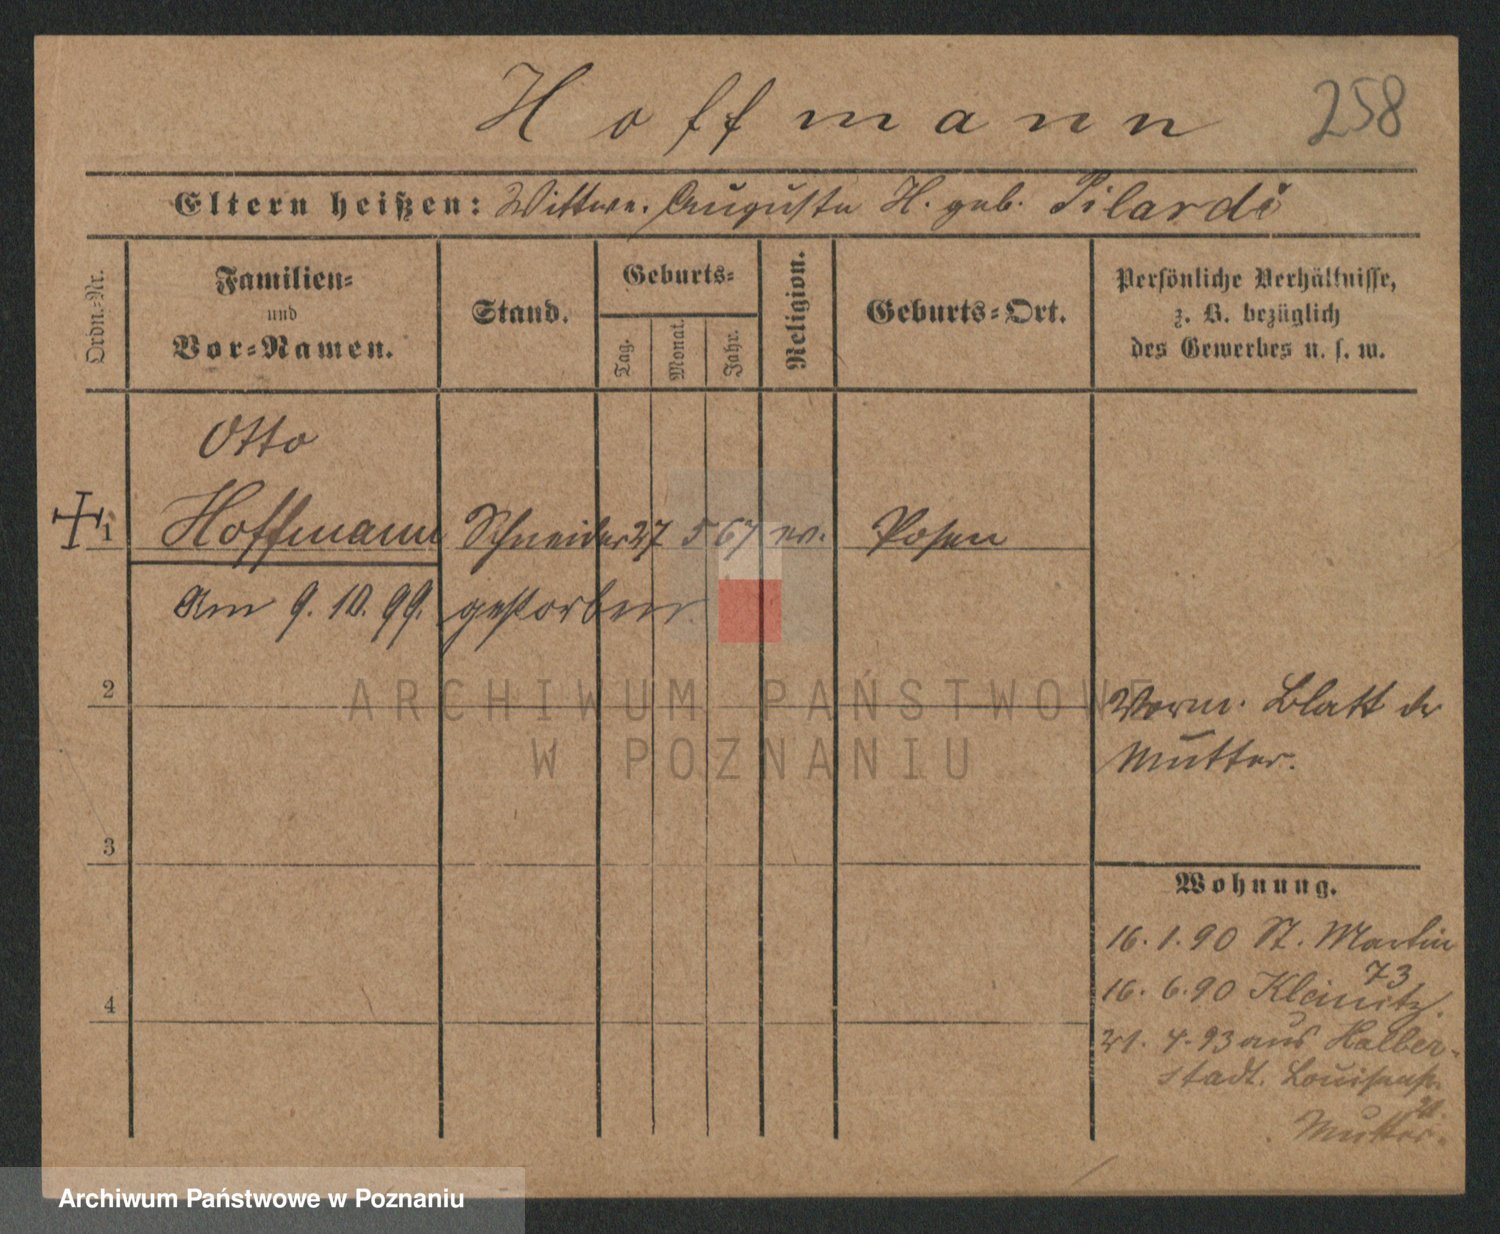 Hoffmann 258
Eltern heißen: Wittwe. Auguste H. geb. Pilardi
Ordn.-Nr.
Familien-
und
Vor-Namen.
Stand.
Geburts-
Tag.
Monat.
Jahr.
Religion.
Geburts-Ort.
Persönliche Verhältnisse,
z. B. bezüglich
des Gewerbes u. s. w.
Otto
1 Hoffmann Schneider 27 5 67 ev. Posen
Am 9. 10. 99. gestorben.
2
Verm. Blatt der
Mutter.
3
4
Wohnung.
16. 1. 90 St. Martin
73
16. 6. 90 Kleinitz.
21. 4. 93 aus Halber-
stadt. Louisenstr.
Mutter.
ARCHIWUM PAŃSTWOWE
W POZNANIU
Archiwum Państwowe w Poznaniu